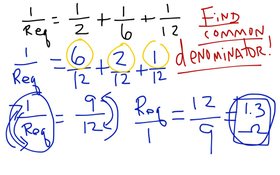 1/Req = 1/2 + 1/6 + 1/12
FIND
common
denominator!
1/Req = 6/12 + 2/12 + 1/12
1/Req = 9/12
Req/1 = 12/9 = 1.3 Ω